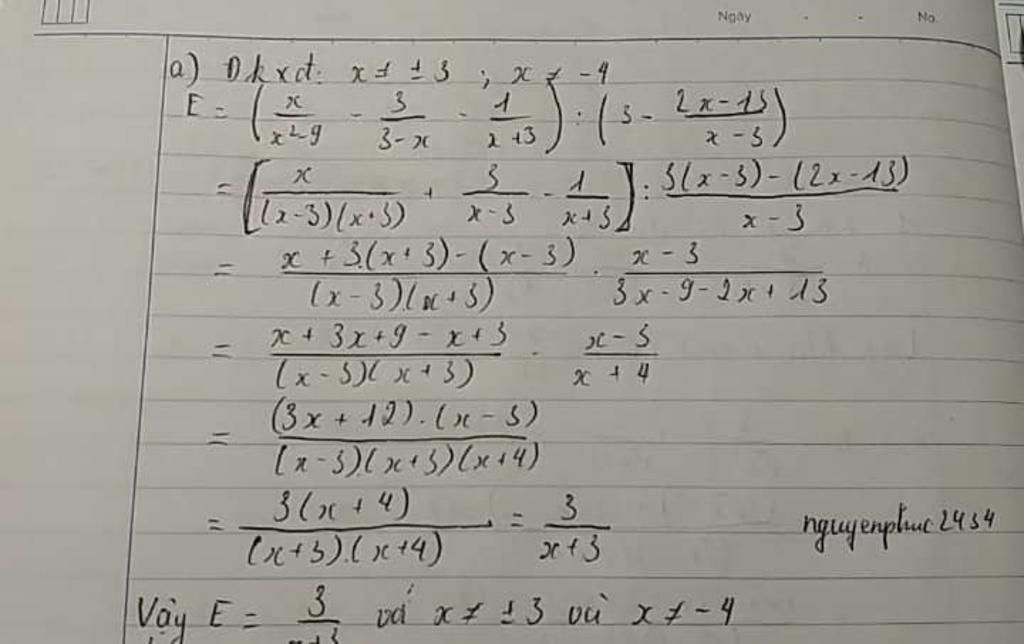 Ngày . . No.
a) Đkxđ: x ≠ ± 3 ; x ≠ -4
E = (x/(x²-9) - 3/(3-x) - 1/(x+3)) : (3 - (2x-13)/(x-3))
= [x/((x-3)(x+3)) + 3/(x-3) - 1/(x+3)] : (3(x-3)-(2x-13))/(x-3)
= (x+3.(x+3)-(x-3))/((x-3)(x+3)) . (x-3)/(3x-9-2x+13)
= (x+3x+9-x+3)/((x-3)(x+3)) . (x-3)/(x+4)
= ((3x+12).(x-3))/((x-3)(x+3)(x+4))
= (3(x+4))/((x+3).(x+4)) = 3/(x+3)
nguyenphuc2434
Vậy E = 3/(x+3) với x ≠ ± 3 và x ≠ -4